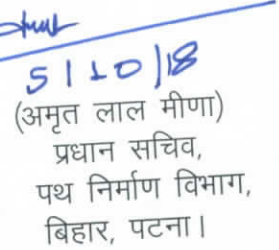 5/10/18
(अमृत लाल मीणा)
प्रधान सचिव,
पथ निर्माण विभाग,
बिहार, पटना।